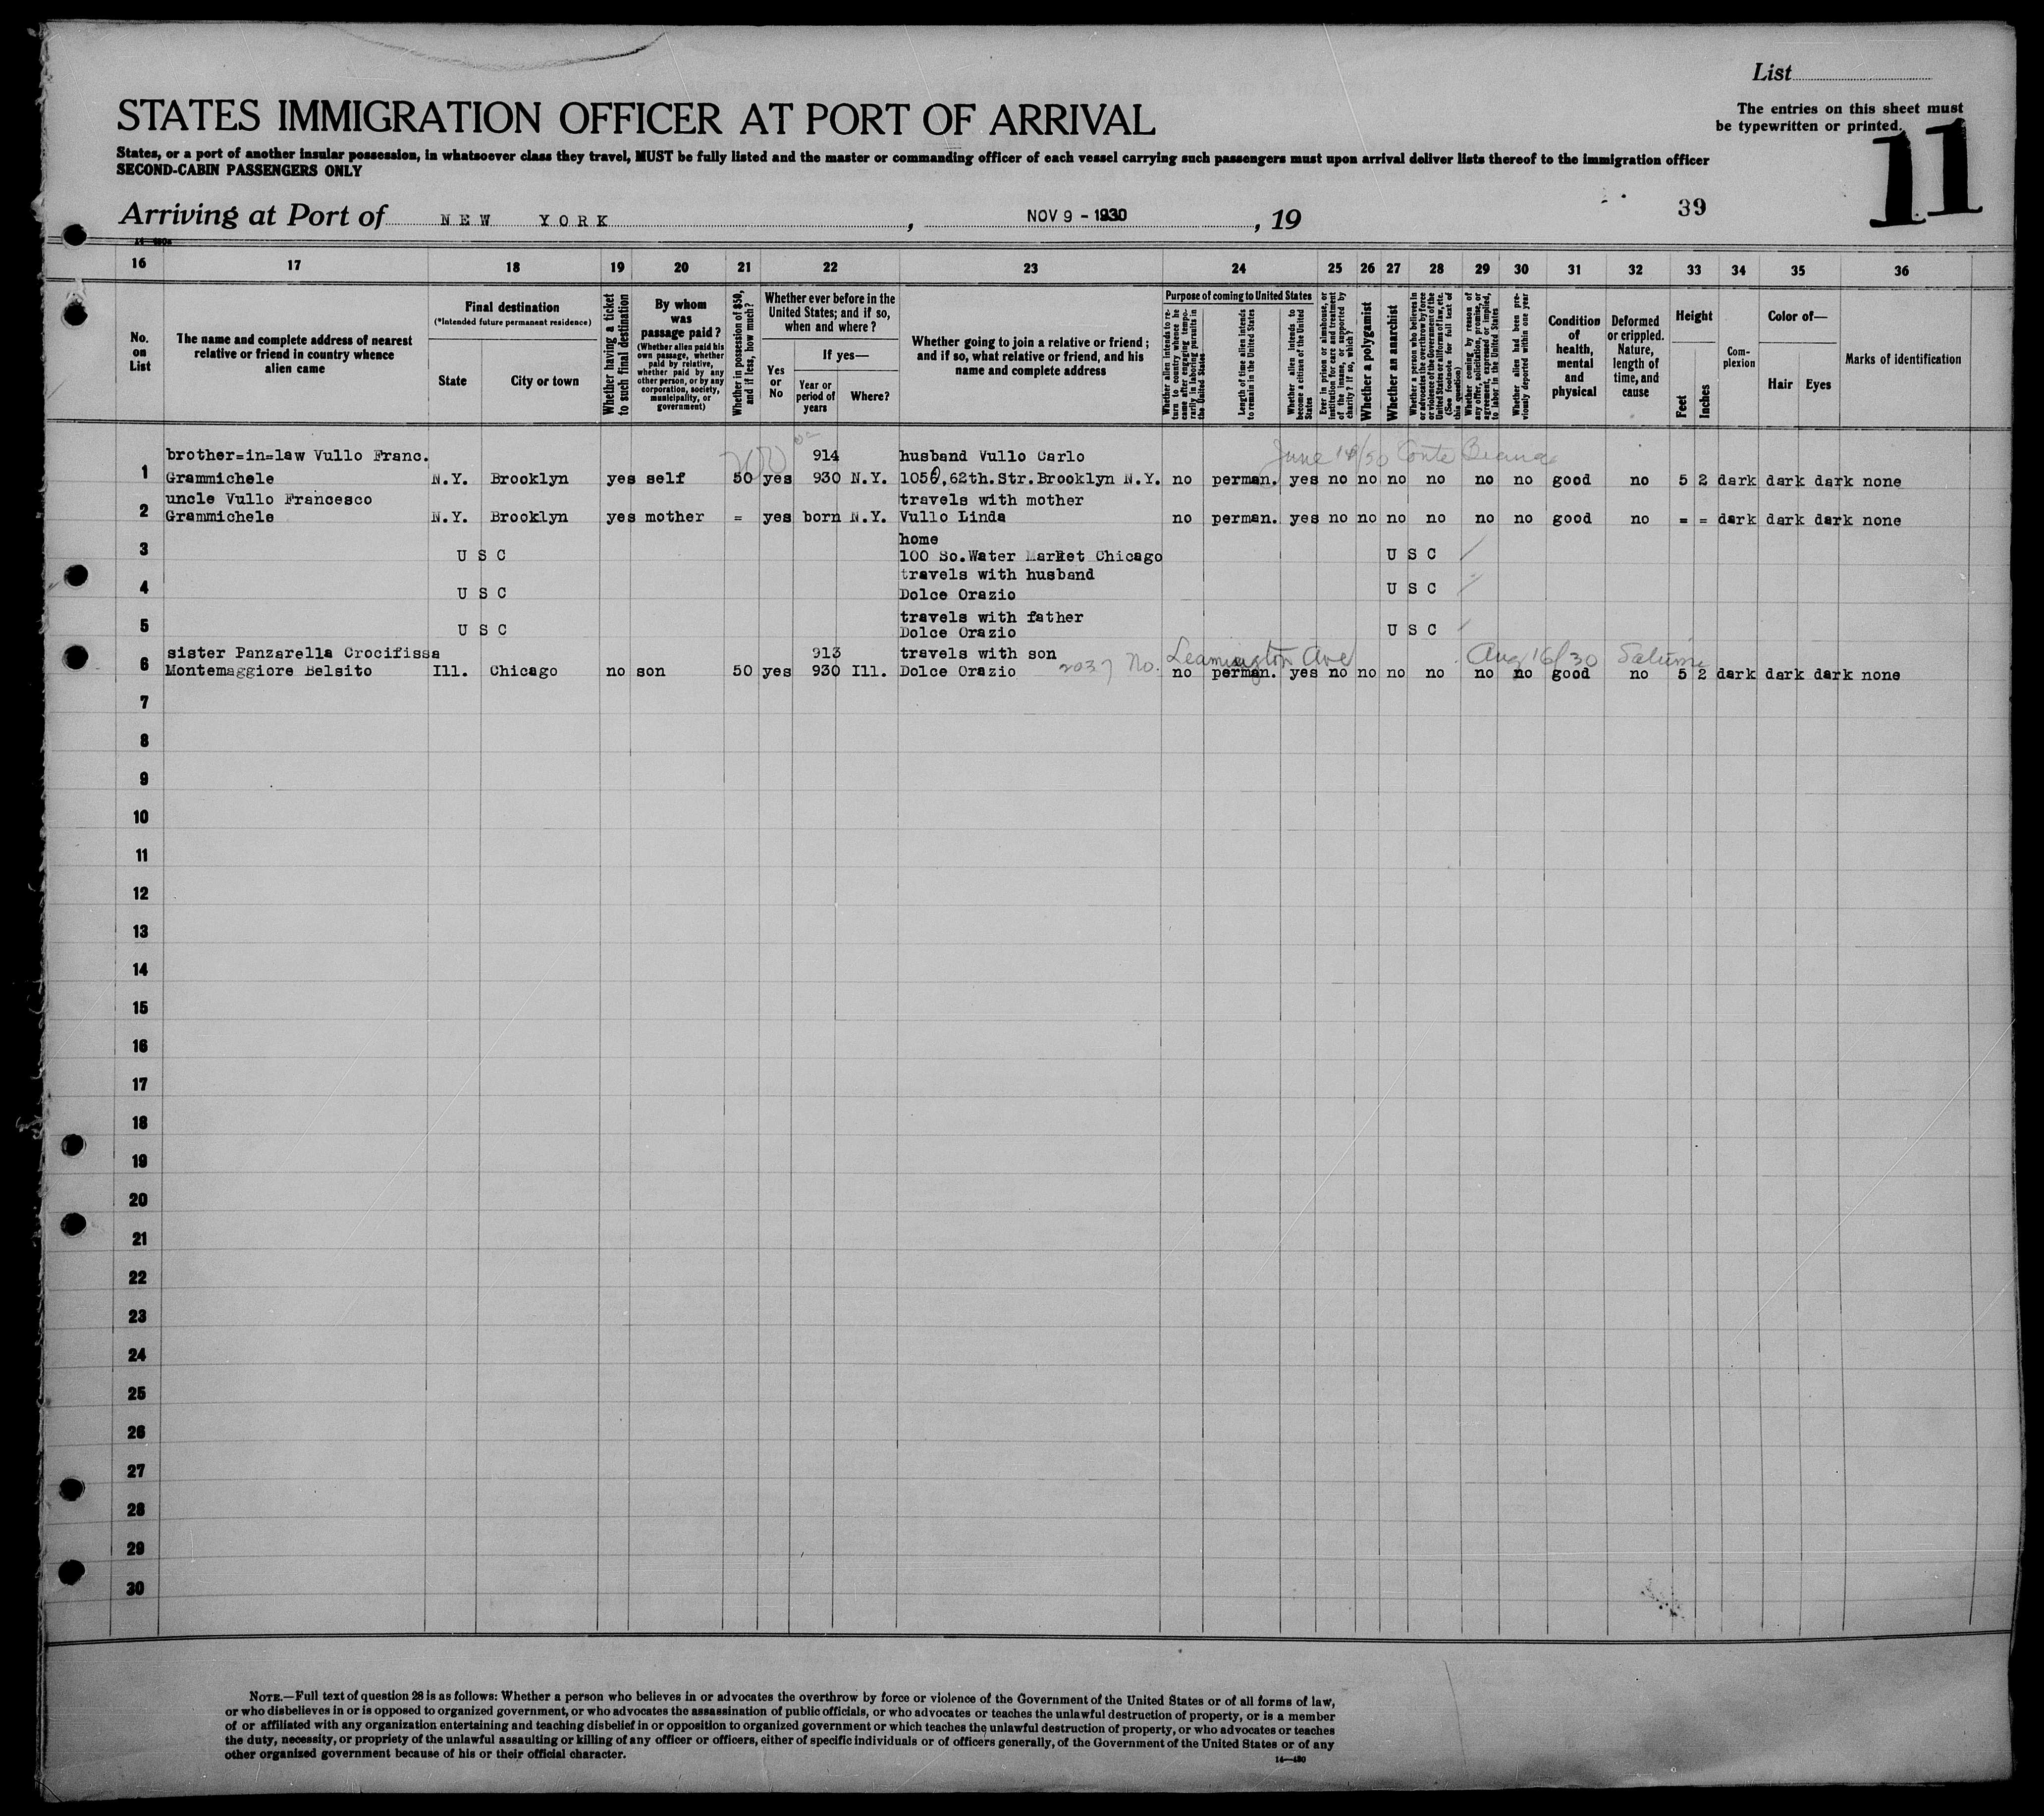 List
STATES IMMIGRATION OFFICER AT PORT OF ARRIVAL
The entries on this sheet must
be typewritten or printed.
11
States, or a port of another insular possession, in whatsoever class they travel, MUST be fully listed and the master or commanding officer of each vessel carrying such passengers must upon arrival deliver lists thereof to the immigration officer
SECOND-CABIN PASSENGERS ONLY
Arriving at Port of NEW YORK, NOV 9 - 1930, 19
39
16 17 18 19 20 21 22 23 24 25 26 27 28 29 30 31 32 33 34 35 36
No. on List
The name and complete address of nearest relative or friend in country whence alien came
Final destination
(*Intended future permanent residence)
State
City or town
Whether having a ticket to such final destination
By whom was passage paid?
(Whether alien paid his own passage, whether paid by relative, whether paid by any other person, or by any corporation, society, municipality, or government)
Whether in possession of $50, and if less, how much?
Whether ever before in the United States; and if so, when and where?
Yes or No
If yes—
Year or period of years
Where?
Whether going to join a relative or friend; and if so, what relative or friend, and his name and complete address
Purpose of coming to United States
Whether alien intends to return to country whence he came after engaging temporarily in laboring pursuits in the United States
Length of time alien intends to remain in the United States
Whether alien intends to become a citizen of the United States
Ever in prison or almshouse, or institution for care and treatment of the insane, or supported by charity? If so, which?
Whether a polygamist
Whether an anarchist
Whether a person who believes in or advocates the overthrow by force or violence of the Government of the United States or all forms of law, etc. (See footnote for full text of this question)
Whether coming by reason of any offer, solicitation, promise, or agreement, expressed or implied, to labor in the United States
Whether alien had been previously deported within one year
Condition of health, mental and physical
Deformed or crippled. Nature, length of time, and cause
Height
Feet
Inches
Complexion
Color of—
Hair Eyes
Marks of identification
brother=in=law Vullo Franc. 914 husband Vullo Carlo June 14/30 Conte
1 Grammichele N.Y. Brooklyn yes self 50 yes 930 N.Y. 1056,62th.Str.Brooklyn N.Y. no perman. yes no no no no no no good no 5 2 dark dark dark none
uncle Vullo Francesco travels with mother
2 Grammichele N.Y. Brooklyn yes mother = yes born N.Y. Vullo Linda no perman. yes no no no no no no good no = = dark dark dark none
home
3 U S C 100 So.Water Market Chicago U S C
travels with husband
4 U S C Dolce Orazio U S C
travels with father
5 U S C Dolce Orazio U S C
sister Panzarella Crocifissa 913 travels with son 2037 No. Leamington Ave Aug 16/30
6 Montemaggiore Belsito Ill. Chicago no son 50 yes 930 Ill. Dolce Orazio no perman. yes no no no no no no good no 5 2 dark dark dark none
7
8
9
10
11
12
13
14
15
16
17
18
19
20
21
22
23
24
25
26
27
28
29
30
NOTE.—Full text of question 28 is as follows: Whether a person who believes in or advocates the overthrow by force or violence of the Government of the United States or of all forms of law,
or who disbelieves in or is opposed to organized government, or who advocates the assassination of public officials, or who advocates or teaches the unlawful destruction of property, or is a member
of or affiliated with any organization entertaining and teaching disbelief in or opposition to organized government or which teaches the unlawful destruction of property, or who advocates or teaches
the duty, necessity, or propriety of the unlawful assaulting or killing of any officer or officers, either of specific individuals or of officers generally, of the Government of the United States or of any
other organized government because of his or their official character.
14—480